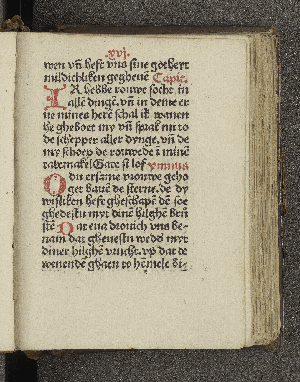 xvj.
wen vñ heft vns sine gotheyt
mildichliken gegheuē Capit.
IK hebbe rouwe socht in
allē dingē. vñ in deme er
ue mines herē schal ik wanen
he gheboet my vñ sprak my to
de schepper aller dynge. vñ de
my schop de rouwede ī minē
tabernakel Gade si lof ympnus
O du ersame vrouwe geho
get bauē de sterne. de dy
wisliken heft gheschapē dē soe
ghedestu myt dinē hilghē brus
stē Dat eua drouich vns be-
nam dat gheuestu wedd myt
diner hilghē vrucht. vp dat de
wenende ghaen to hēmele bi-